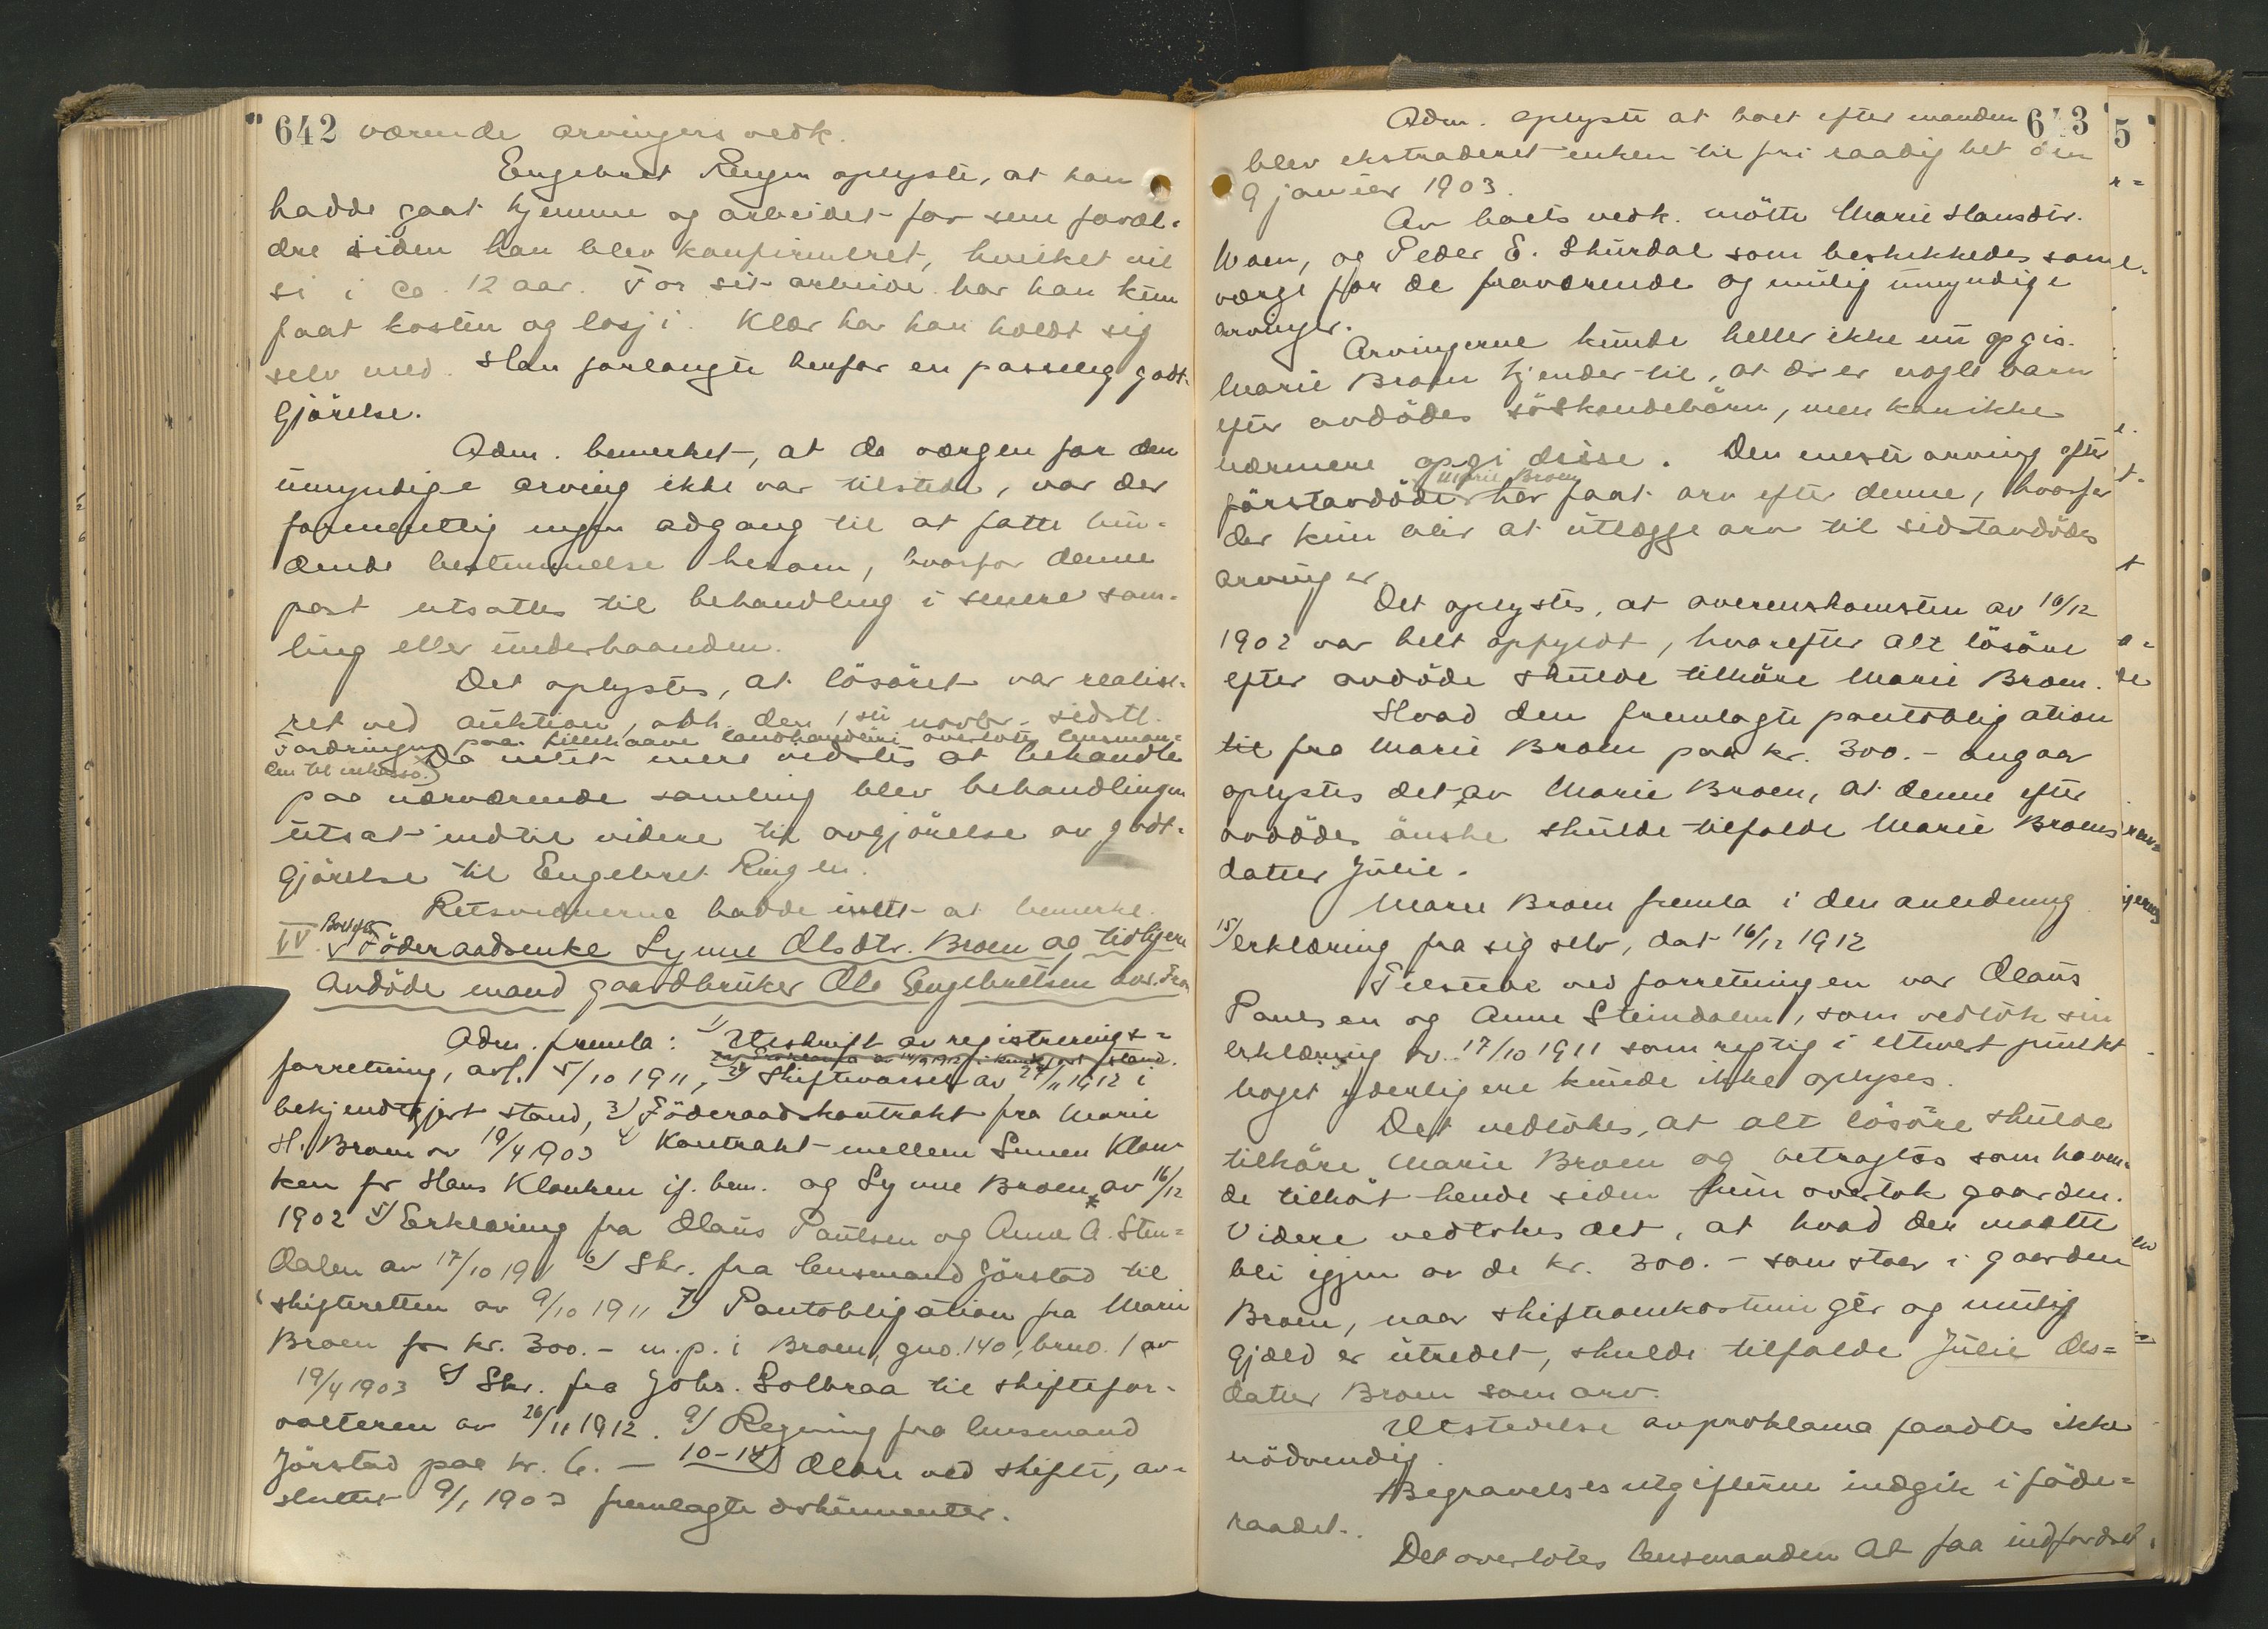 642 værende arvingers vedk.
Engebret Ringen oplyste, at han
hadde gaat hjemme og arbeidet for sine foræl-
dre siden han blev konfirmeret, hvilket vil
si i ca. 12 aar. For sit arbeide har han kun
faat kosten og losji. Klær har han holdt sig
selv med. Han forlangte herfor en passelig godt-
gjörelse.
Adm. bemerket, at daværgen for den
umyndige arving ikke var tilstede, var der
formentlig ingen adgang til at fatte bin-
dende bestemmelse herom, hvorfor denne
post utsattes til behandling i senere sam-
ling eller underhaanden.
Det oplystes, at lösöret var realise-
ret ved auktion, avh. den 1ste novbr. sidstl.
Fordringen paa landhandleri overlotes lensman-
den til inkasso. Da intet mere vedstes at behandle
paa nærværende samling blev behandlingen
utsat indtil videre til avgjörelse av godt-
gjörelse til Engebret Ringen.
Retsvidnerne hadde intet at bemerke.
IV. Boet efter Föderaadsenke Synne Olsdtr. Broen og tidligere
avdöde mand gaardbruker Ole Engebretsen
Adm. fremla: 1) Utskrift av registrerings-
forretning, avh. 5/10 1911, 2) Skiftevarsel av 27/11 1912 i
bekjendtgjort stand, 3) Föderaadskontrakt fra Marie
H. Broen av 19/4 1903 4) Kontrakt mellem Simen Klan-
ken for Hans Klanken if. bem. og Synne Broen av 16/12
1902 5) Erklæring fra Olaus Paulsen og Anne A. Sten-
dalen av 17/10 1911 6) Skr. fra lensmand Jörstad til
skifteretten av 9/10 1911 7) Pantobligation fra Marie
Broen for kr. 300.- m.p. i Broen, gno. 140, brno. 1 av
19/4 1903 8) Skr. fra Johs. Solbraa til skiftefor-
valteren av 26/11 1912. 9) Regning fra lensmand
Jörstad paa kr. 6. — 10-14) De ved skifte, av-
sluttet 9/1 1903 fremlagte dokumenter.
643
Adm. oplyste at boet efter manden
blev ekstraderet enken til fri raadighet den
9 januar 1903.
Av boets vedk. mötte Marie Hansdtr.
Broen, og Peder E. Skurdal som beskikkedes som
værge for de fraværende og mulig umyndige
arvinger.
Arvingerne kunde heller ikke nu opgis.
Marie Broen kjender til, at der er nogle barn
efter avdödes söskendebörn, men kan ikke
nærmere opgi disse. Den eneste arving efter
förstavdöde Marie Broen har faat arv efter denne, hvorfor
der kun blir at utlægge arv til sidstavdödes
arvinger.
Det oplystes, at overenskomsten av 16/12
1902 var helt opfyldt, hvorefter alt lösöre
efter avdöde skulde tilhöre Marie Broen.
Hvad den fremlagte pantobligation
til fra Marie Broen paa kr. 300.- angaar
oplystes det av Marie Broen, at denne efter
avdödes önske skulde tilfalde Marie Broens
datter Julie.
Marie Broen fremla i den anledning
15) erklæring fra sig selv, dat 16/12 1912
Tilstede ved forretningen var Olaus
Paulsen og Anne Steindalen, som vedtok sin
erklæring av 17/10 1911 som rigtig i ethvert punkt
Noget yderligere kunde ikke oplyses.
Det vedtokes, at alt lösöre skulde
tilhöre Marie Broen og betragtes som haven-
de tilhört hende siden hun overtok gaarden.
Videre vedtokes det, at hvad der maatte
bli igjen av de kr. 300.- som staar i gaarden
Broen, naar skifteomkostninger og mulig
gjæld er utredet, skulde tilfalde Julie Ols-
datter Broen som arv.
Utstedelse av proklama fandtes ikke
nödvendig.
Begravelsesutgifterne indgik i föde-
raadet.
Det overlotes lensmanden at faa indfordret